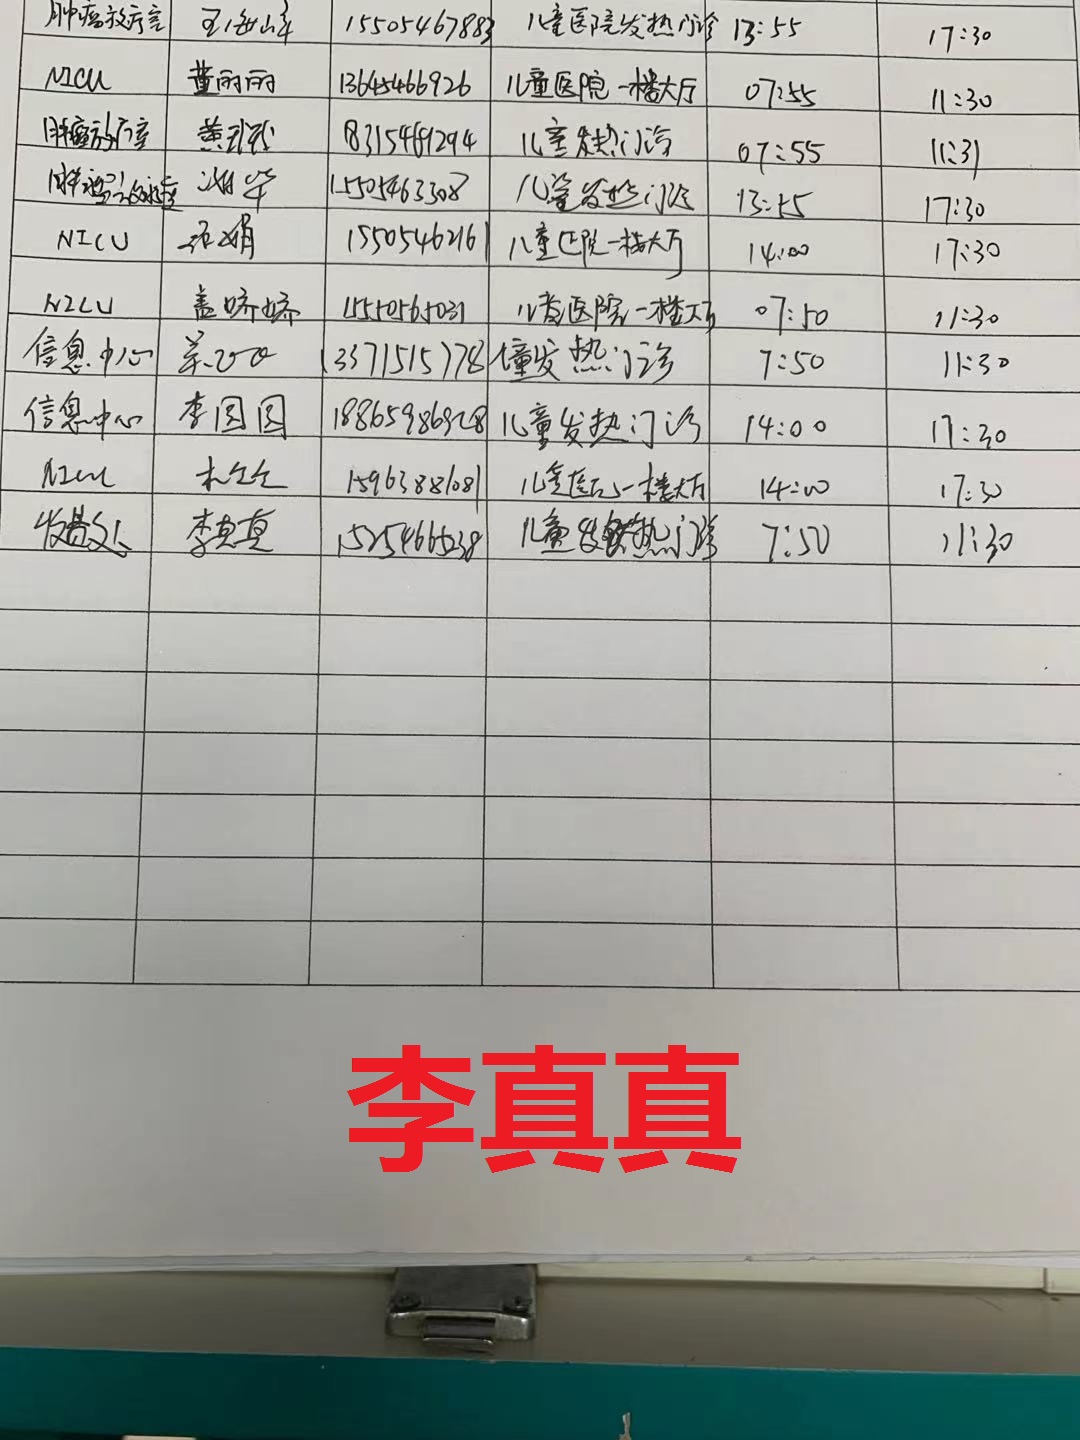 肿瘤放疗室 15505467883 儿童医院发热门诊 13:55 17:30
NICU 董丽丽 13645466926 儿童医院一楼大厅 07:55 11:30
肿瘤放疗室 8315461294 儿童发热门诊 07:55 11:31
15505463308 儿童发热门诊 13:55 17:30
NICU 15505462161 儿童医院一楼大厅 14:00 17:30
NICU 盖娇娇 儿童医院一楼大厅 07:50 11:30
信息中心 13371515778 儿童发热门诊 7:50 11:30
信息中心 李圆圆 18865986928 儿童发热门诊 14:00 17:30
NICU 15963881081 儿童医院一楼大厅 14:00 17:30
李真真 15254665238 儿童发热门诊 7:50 11:30
李真真